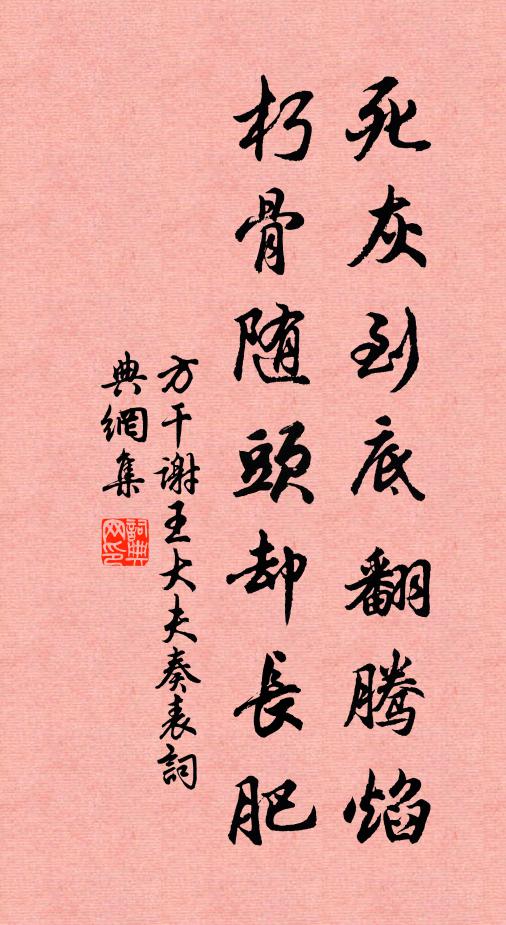 死灰到底翻腾焰
朽骨随頭却長肥
方干谢王大夫奏表詞
典網集
詞典网印